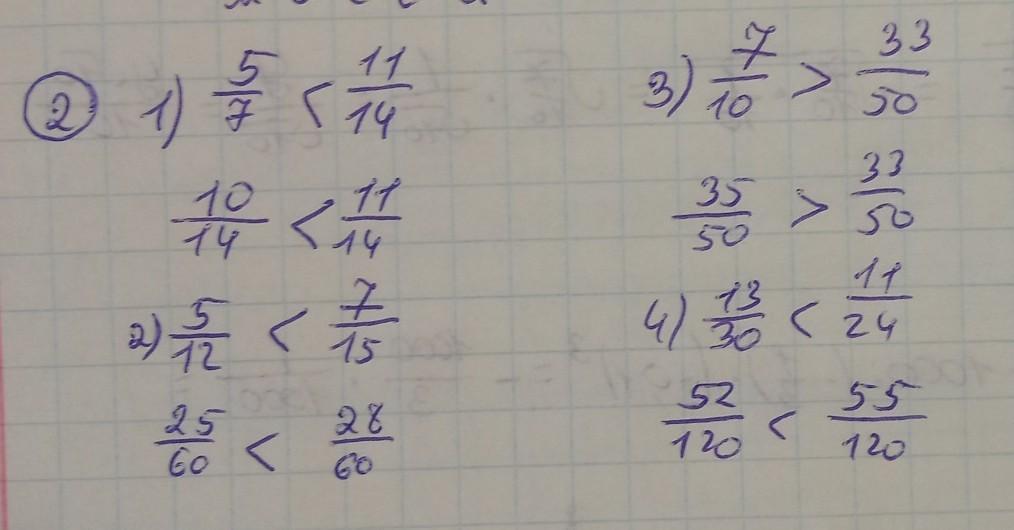 ② 1) 5/7 < 11/14
10/14 < 11/14
2) 5/12 < 7/15
25/60 < 28/60
3) 7/10 > 33/50
35/50 > 33/50
4) 13/30 < 11/24
52/120 < 55/120